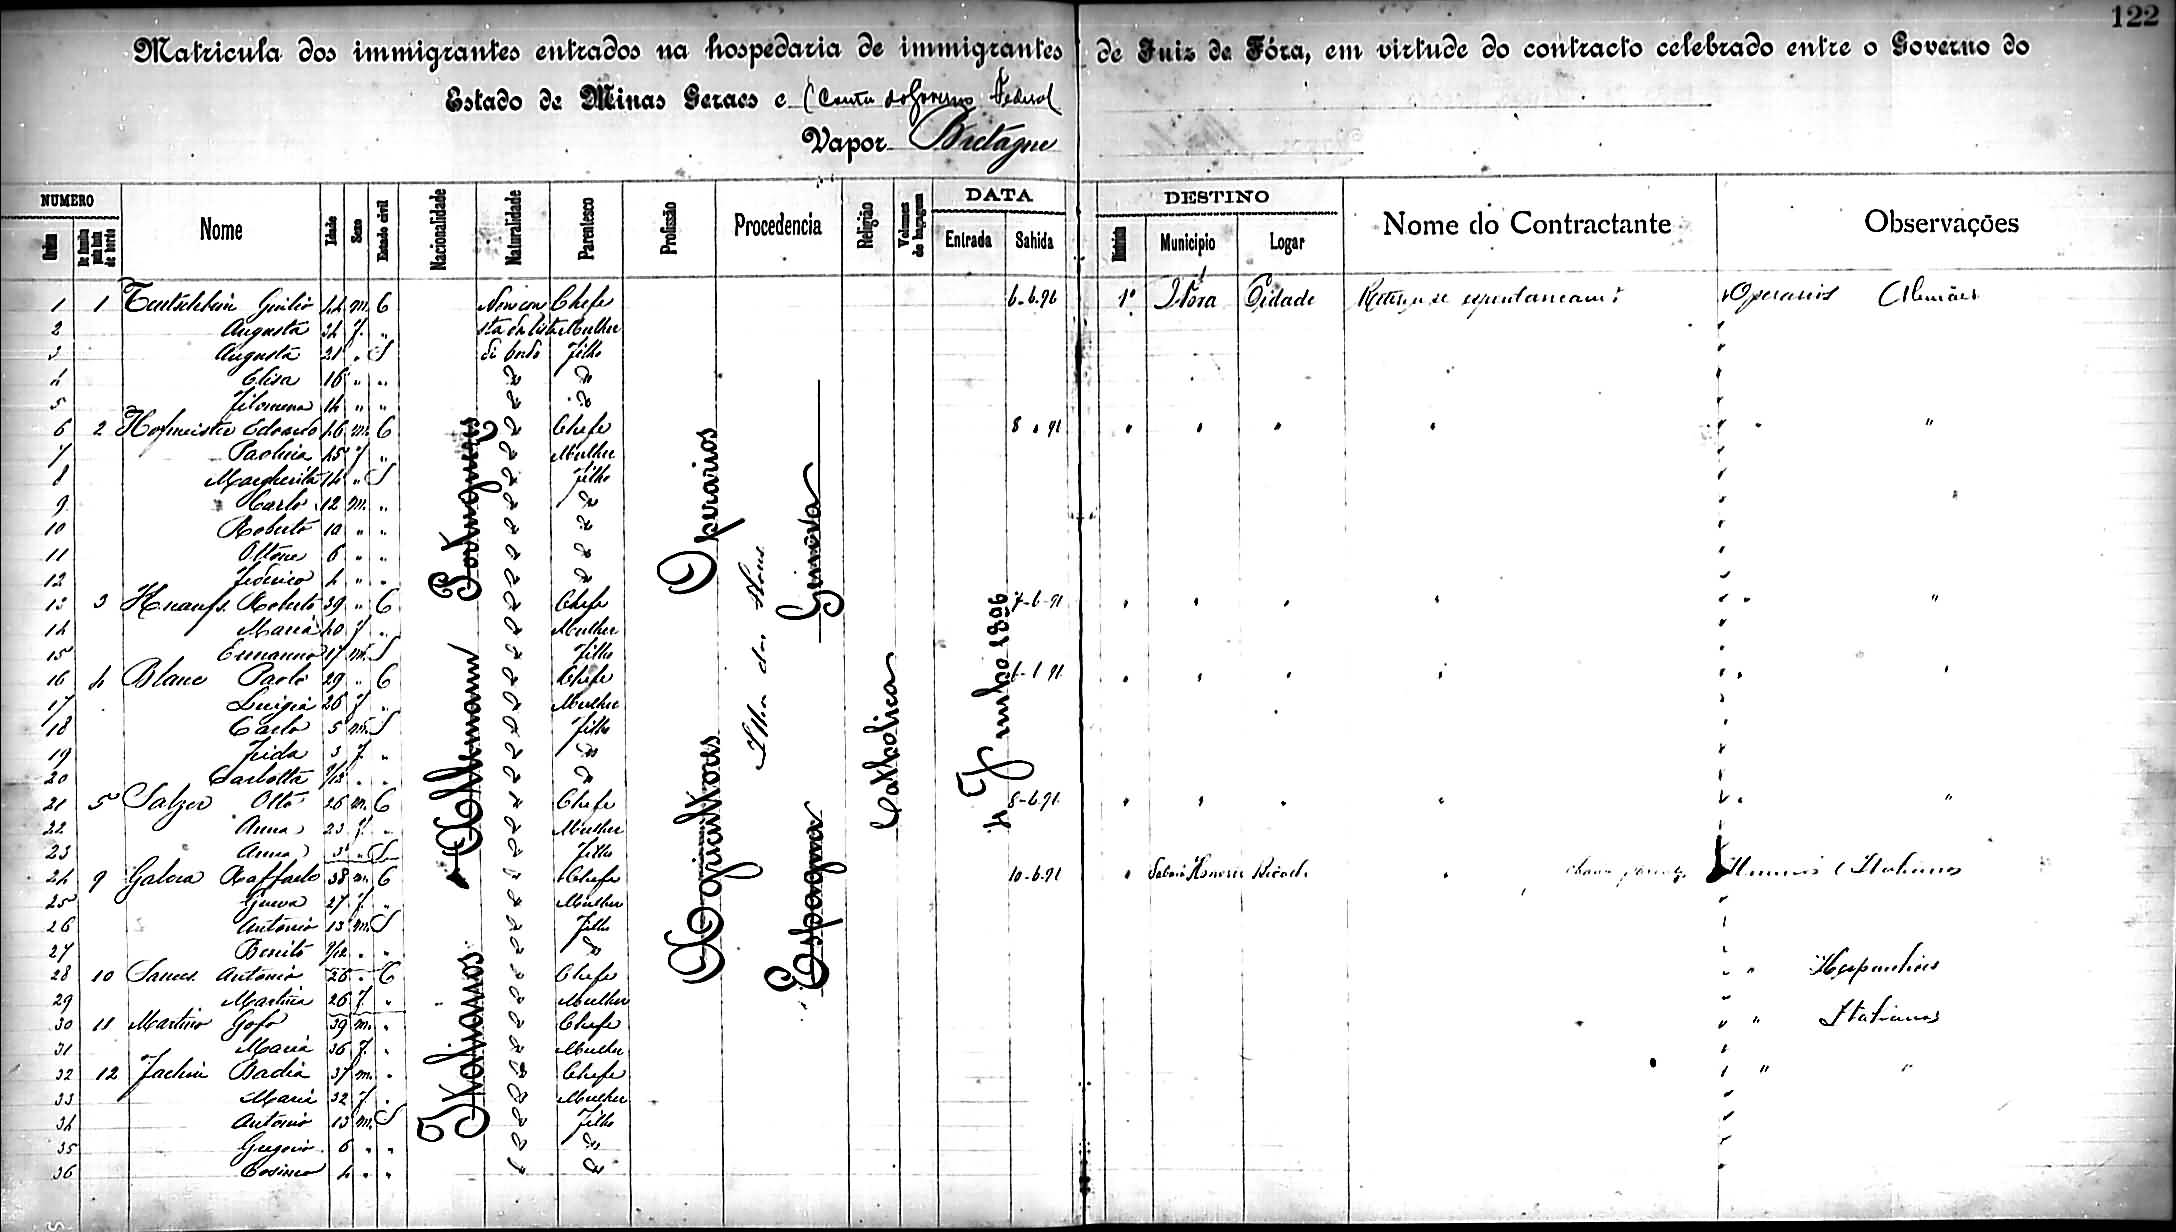 122
Matricula dos immigrantes entrados na hospedaria de immigrantes de Juiz de Fóra, em virtude do contracto celebrado entre o Governo do
Estado de Minas Geraes e (Conta do Governo Federal
Vapor Bretagne
NUMERO DATA DESTINO
Ordem De familia pela lista de bordo Nome Idade Sexo Estado civil Nacionalidade Naturalidade Parentesco Profissão Procedencia Religião Volumes de bagagem Entrada Sahida Districto Municipio Logar Nome do Contractante Observações
1 1 Giulio 44 m. C Non con Chefe 6-6-96 1º J. Fóra Cidade Operarios Alemães
2 Augusta 34 f. " sta da lista Mulher
3 Augusta 21 " S de bordo Filho
4 Elisa 16 " "
5 Filomena 14 " "
6 2 Hofmeister Edoardo 46 m. C Chefe 8 " 96 " " " " " "
7 Paolina 45 f. " Mulher
8 Margherita 14 " S Filho
9 Carlo 12 m. "
10 Roberto 10 " "
11 Ottone 6 " "
12 Federico 4 " "
13 3 Roberto 39 " C Chefe 7-6-96 " " " " " "
14 Maria 40 f. " Mulher
15 Ermanno 17 m. S Filho
16 4 Blanc Paolo 29 " C Chefe 6-6-96 " " " " " "
17 Luigia 26 f. " Mulher
18 Carlo 5 m. S Filho
19 Frida 3 f. "
20 Carlotta " "
21 5 Salzer Otto 26 m. C Chefe 8-6-96 " " " " " "
22 Anna 23 f. " Mulher
23 Anna 3 " S Filho
24 9 Raffaele 38 m. C Chefe 10-6-96 " Italianos
25 27 f. " Mulher
26 Antonio 13 m. S Filho
27 Benito " "
28 10 Antonio 26 " C Chefe " Hespanhóes
29 Martina 26 f. " Mulher
30 11 Martino 39 m. " Chefe " Italianos
31 Maria 36 f. " Mulher
32 12 Badia 37 m. " Chefe " "
33 Maria 32 f. " Mulher
34 Antonio 13 m. S Filho
35 Gregorio 6 " "
36 Cosimo 4 " "
Portuguezes
Allemann
Italianos
Operarios
Agricultores
Ilha das Flores
Genova
Espagna
Catholica
4 Junho 1896